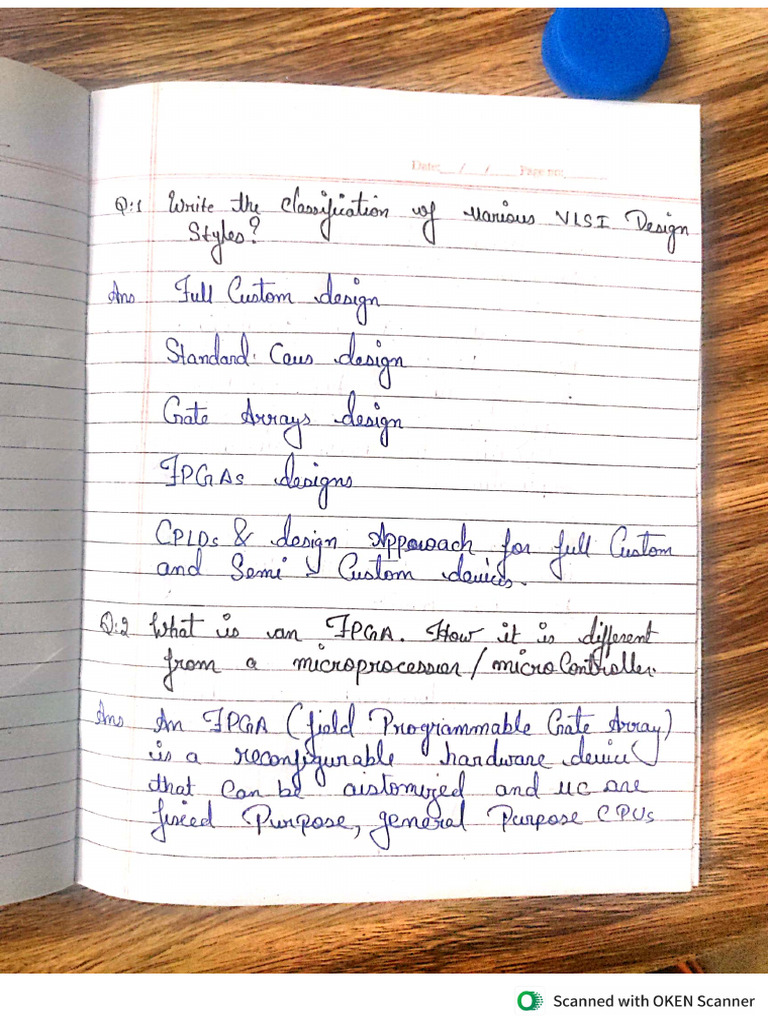 Date: / / Page no:
Q:1 Write the Classification of various VLSI Design
Styles?
Ans Full Custom design
Standard Cells design
Gate Arrays design
FPGAs designs
CPLDs & design Approach for full Custom
and Semi - Custom devices.
Q:2 What is an FPGA. How it is different
from a microprocessor/microController.
Ans An FPGA (field Programmable Gate Array)
is a reconfigurable hardware device
that can be customized and uc are
fixed Purpose, general Purpose CPUs
Scanned with OKEN Scanner